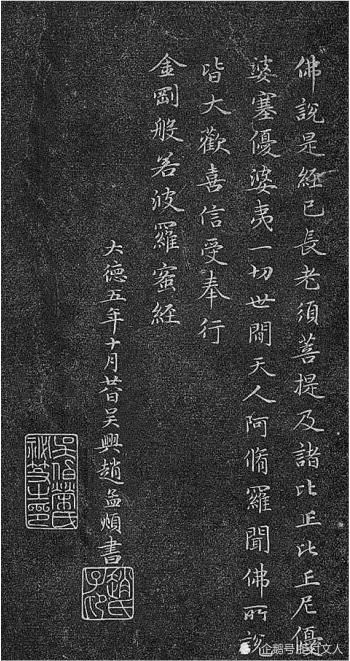 佛說是經已長老須菩提及諸比丘比丘尼優
婆塞優婆夷一切世間天人阿脩羅聞佛所說
皆大歡喜信受奉行
金剛般若波羅蜜經
大德五年十月廿日吳興趙孟頫書
趙氏子昂
吳伯榮氏祕笈之印
企鹅号 文人